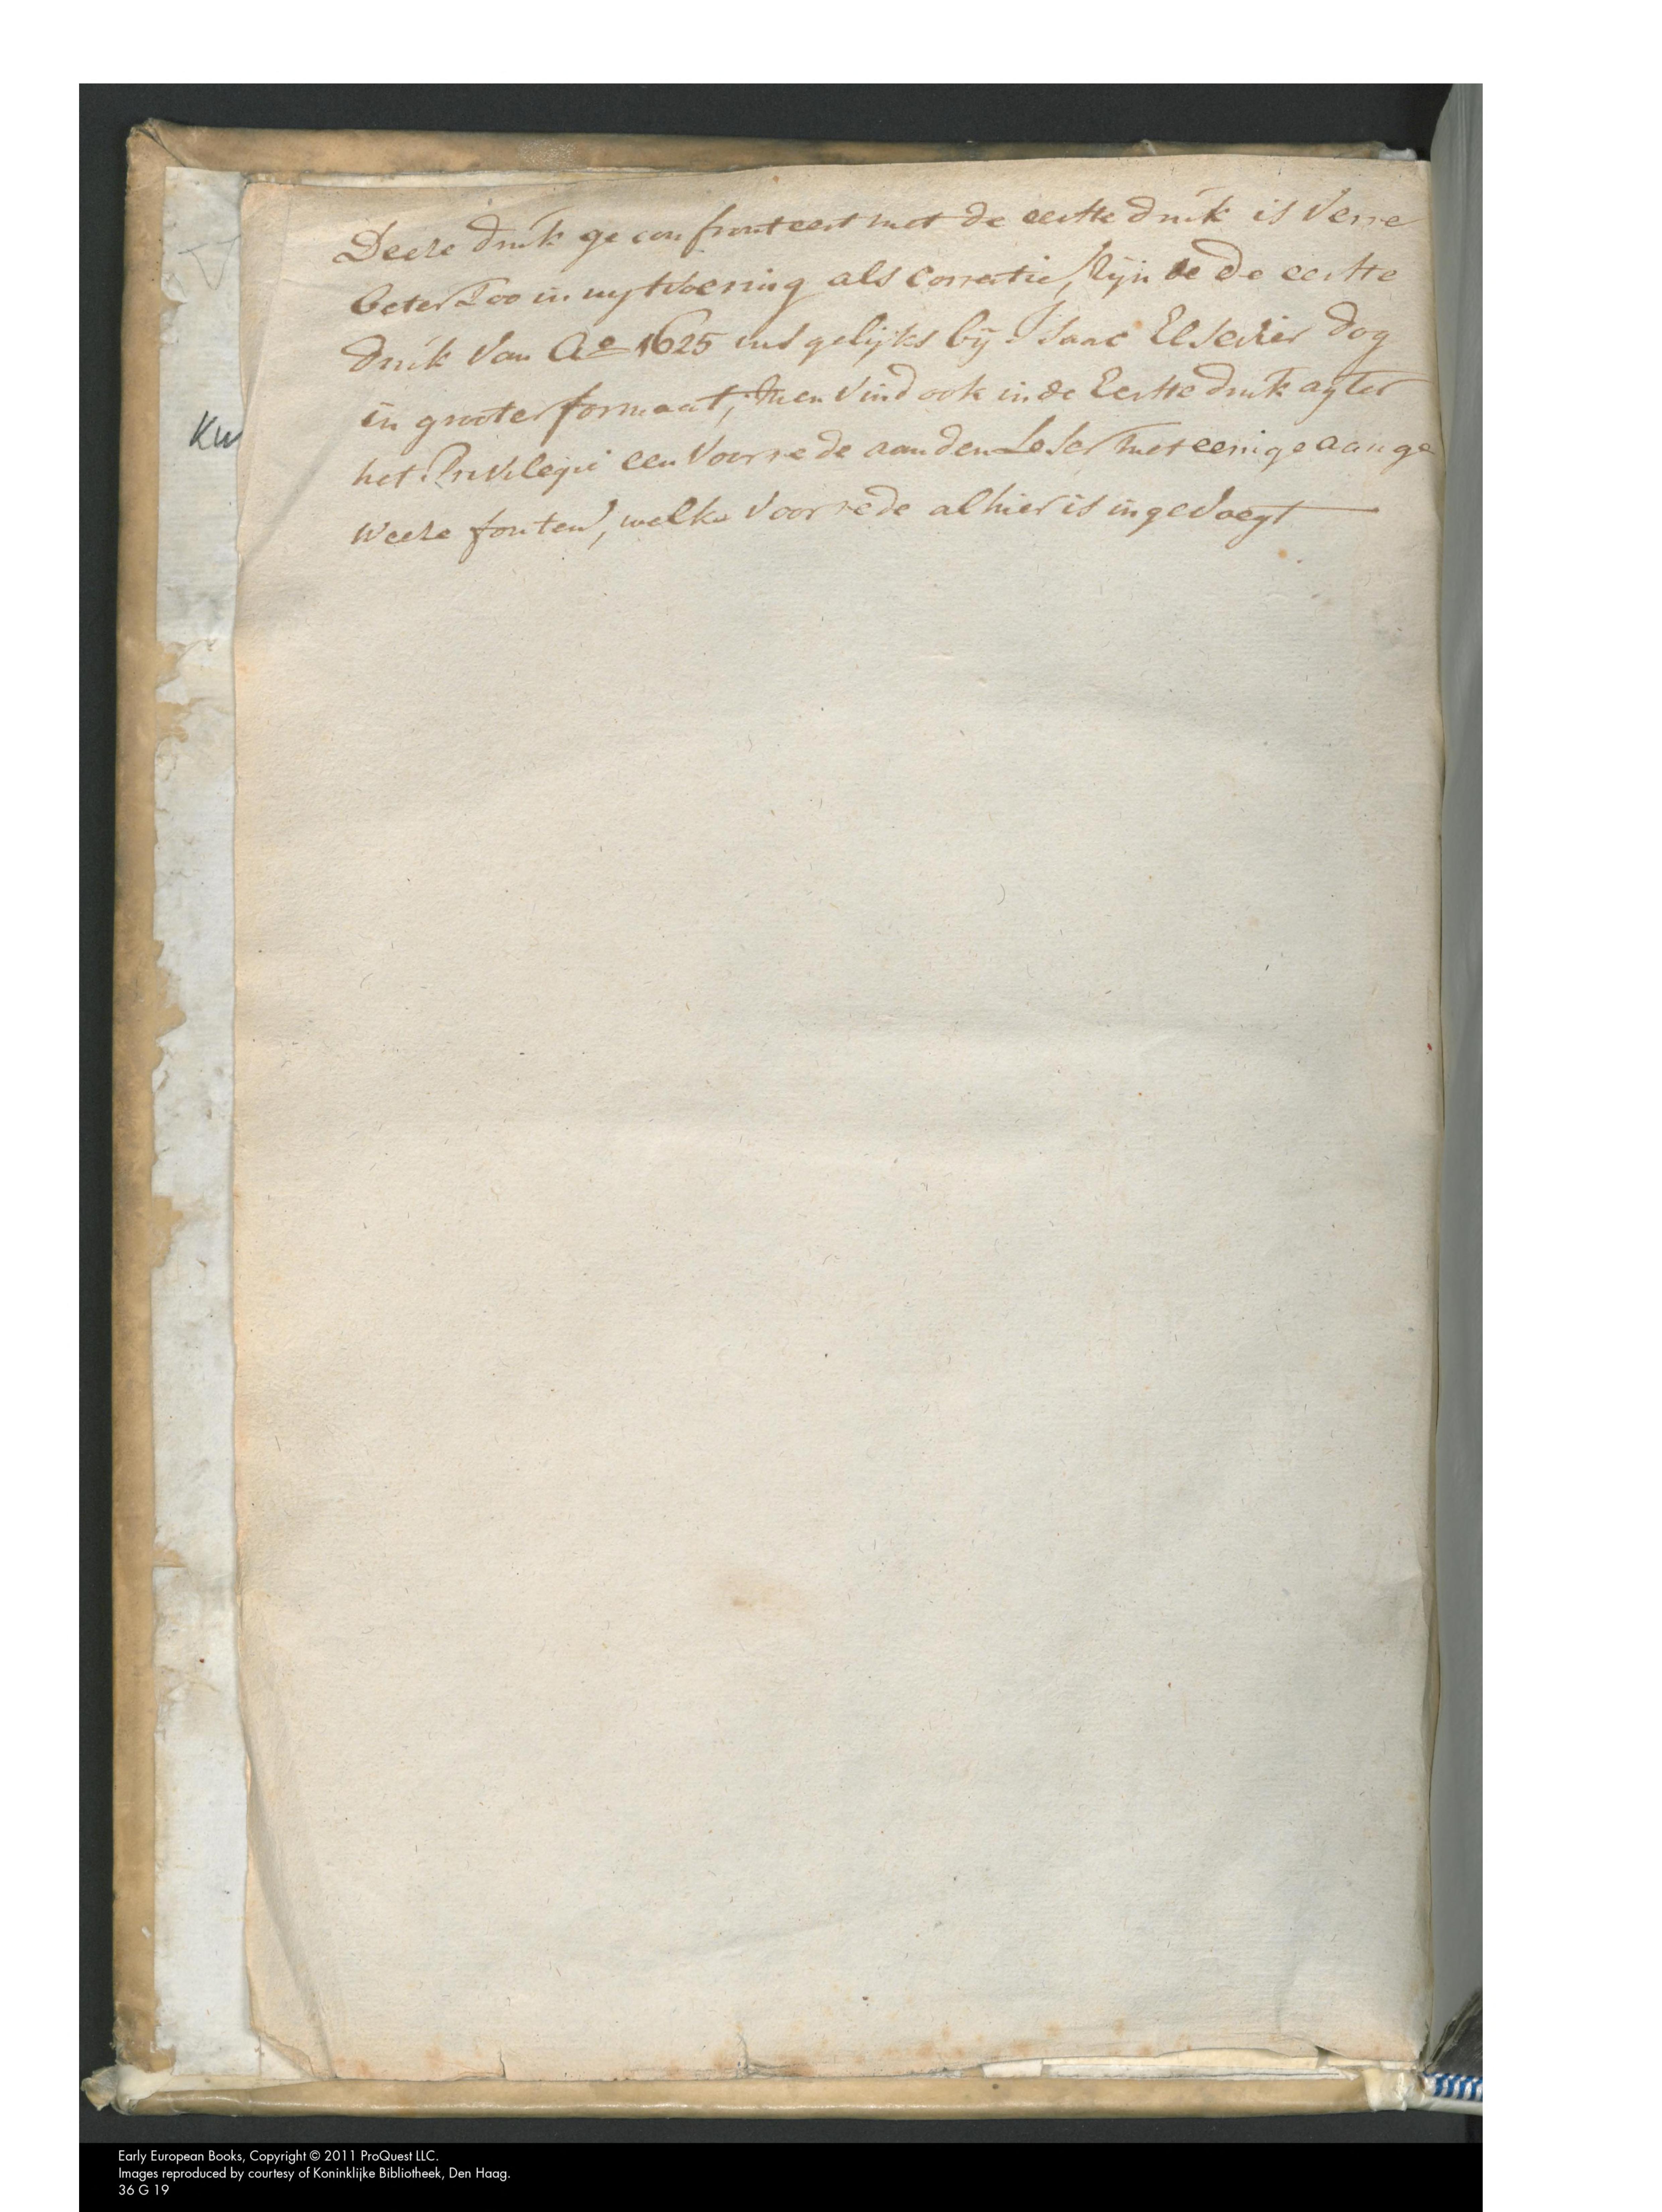 Deeze druk geconfronteert met de eerste druk is verre
beter zoo in uytvoering als correctie, zijnde de eerste
druk van Ao 1625 insgelijks bij Isaac Elsevier dog
in grooter formaat, men vind ook in de Eerste druk agter
het Privilegie een Voorrede aan den Leser met eenige aange
weeze fouten, welke Voorrede alhier is ingevoegt
Early European Books, Copyright © 2011 ProQuest LLC.
Images reproduced by courtesy of Koninklijke Bibliotheek, Den Haag.
36 G 19